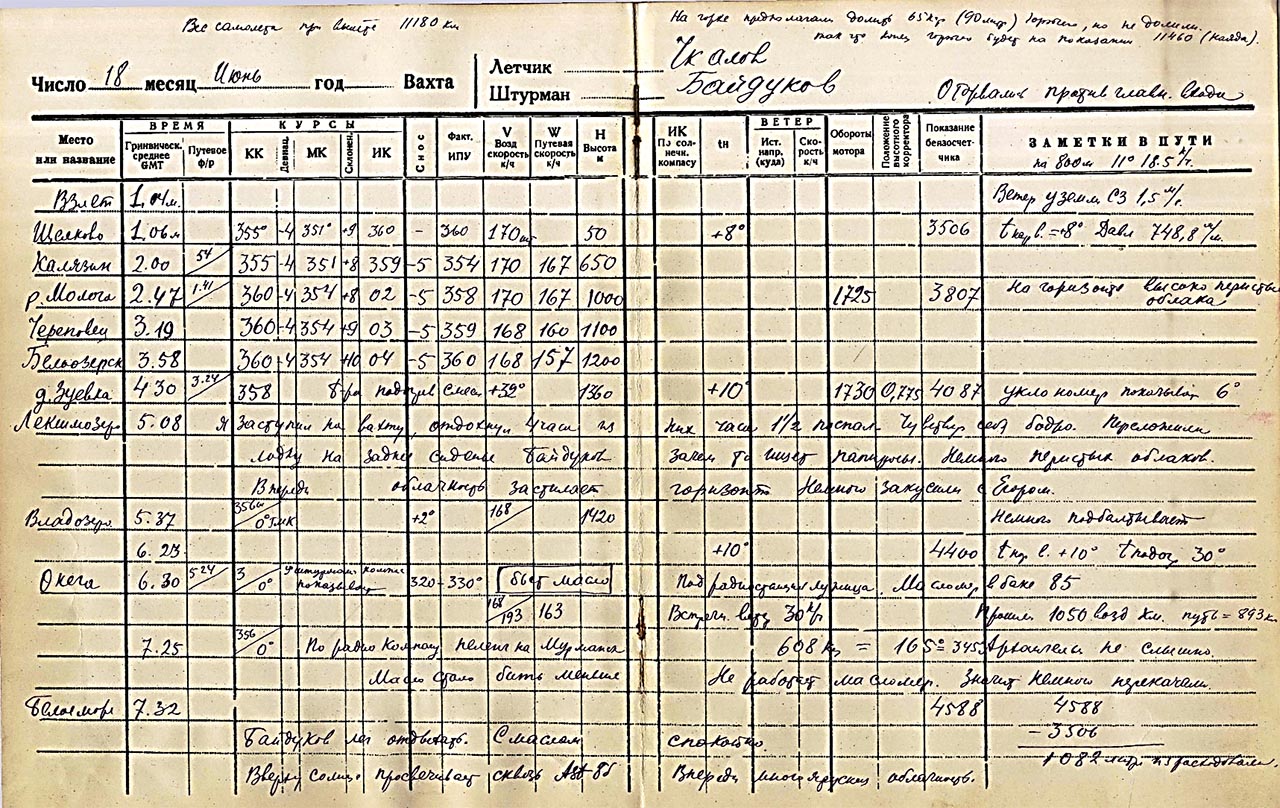 Вес самолета при вылете 11180 кг
На горке предполагали долить 65 кгр (90 литр) горючего, но не долили.
так что конец горючего будет на показании 11460 (Каяда).
Число 18 месяц Июнь год Вахта
Летчик Чкалов
Штурман Байдуков
Оторвались против главн. входа
Место или название ВРЕМЯ Гринвическ. среднее GMT Путевое ф/р КУРСЫ КК Девиац. МК Склонен. ИК Снос Факт. ИПУ V Возд скорость к/ч W Путевая скорость к/ч H Высота м ИК По солнечн. компасу tн ВЕТЕР Ист. напр. (куда) Скорость к/ч Обороты мотора Положение высотного корректора Показание бензосчетчика ЗАМЕТКИ В ПУТИ
на 800м 11° 18.5 м/с.
Взлет 1.04м. Ветер у земли СЗ 1,5 м/с.
Щелково 1.06м 355° -4 351° +9 360 - 360 170 50 +8° 3506 t нар в. = +8° Давл 748,8 м/м.
Калязин 2.00 54 355 -4 351 +8 359 -5 354 170 167 650
р. Молога 2.47 1.41 360 -4 354 +8 02 -5 358 170 167 1000 1725 3807 На горизонте высоко перистые облака
Череповец 3.19 360 -4 354 +9 03 -5 359 168 160 1100
Белоозерск 3.58 360 -4 354 +10 04 -5 360 168 157 1200
д. Зуевка 4 30 3.24 358 t-ра подогрев смеси +32° 1360 +10° 1730 0,775 4087 уклономер показывал 6°
Лекшмозеро 5.08 Я заступил на вахту, отдохнул 4 часа из них часа 1 1/2 поспал. Чувствую себя бодро. Переложили
лодку на заднее сиденье Байдуков зачем то ищет папиросы. Немного перистых облаков.
Впереди облачность застилает горизонт Немного закусили с Егором.
Владозеро 5.37 356 0° +2° 168 1420 Немного подбалтывает
6. 23 +10° 4400 t нар. в. +10° t подог 30°
Онега 6.30 5.24 3 0° У штурмана компас показывает 320-330° бьет масло Под радиостанция лунища. Масломер в баке 85
168 193 163 Встречн. ветер 30 к/ч Прошли 1050 возд км. путь = 893 км
7.25 356 0° По радио компасу пеленг на Мурманск 608 кц = 165° 345 Архангельск не слышно.
Масло стало бить меньше Не работает масломер. Значит немного перекачали.
Белое море 7.32 4588 4588
Байдуков лег отдыхать. С маслом спокойно. - 3506
1082 литр израсходовали.
Вверху солнце просвечивает сквозь Ast 8б Впереди многоярусная облачность.